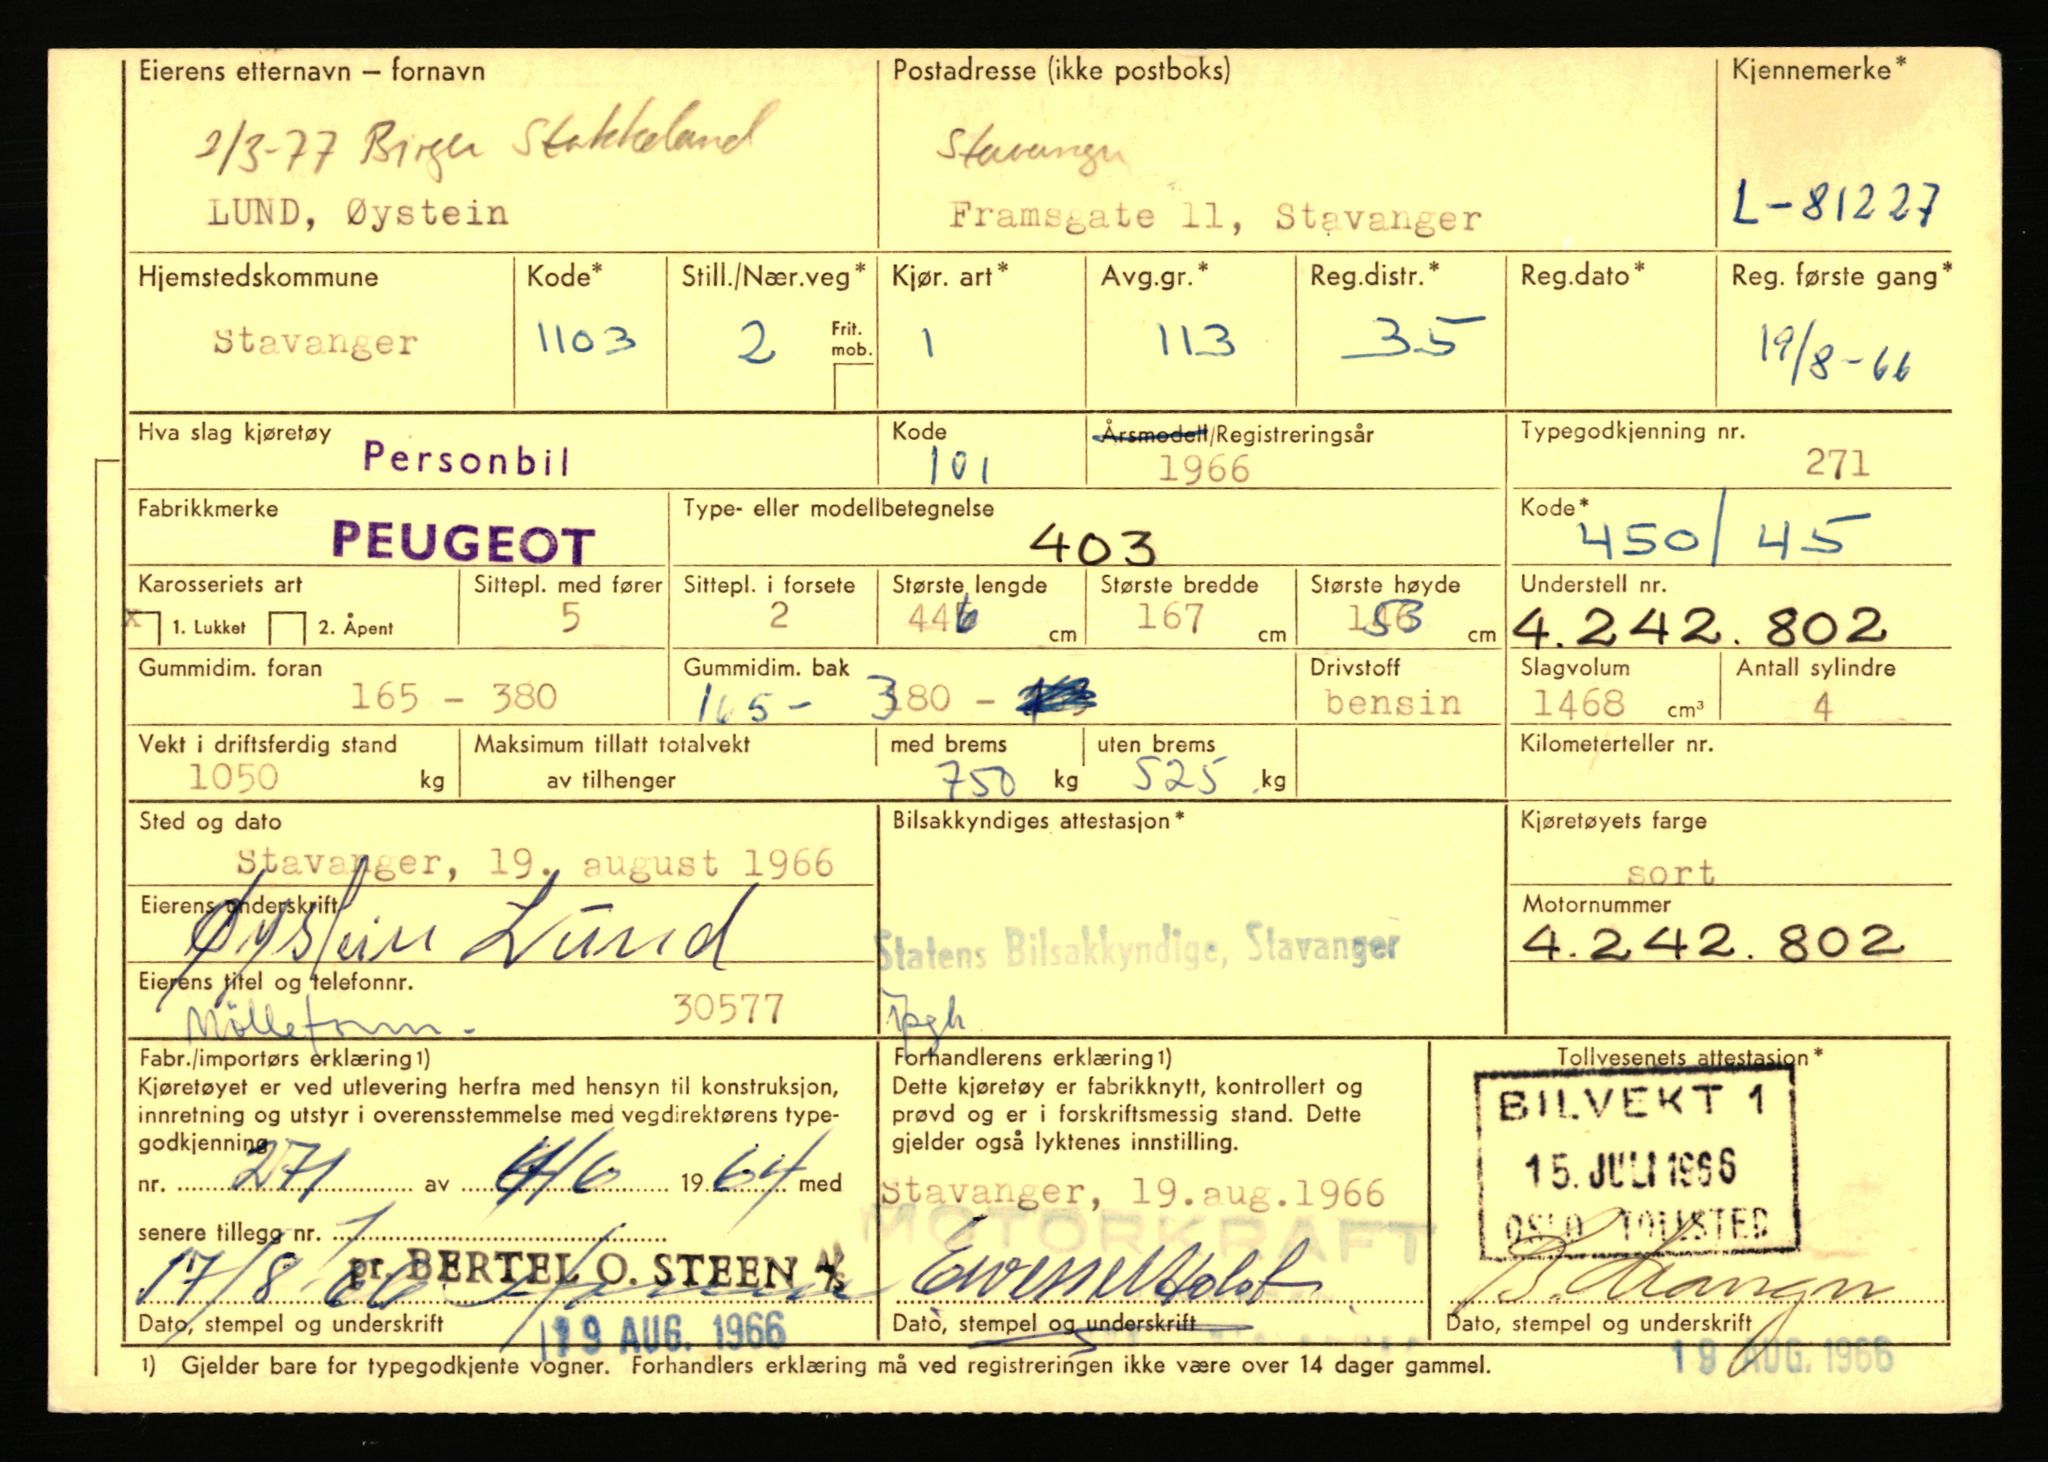 Eierens etternavn – fornavn
Postadresse (ikke postboks)
Kjennemerke*
2/3-77 Birger Stokkeland
Stavanger
LUND, Øystein
Framsgate 11, Stavanger
L-81227
Hjemstedskommune
Kode*
Still./Nær.veg*
Kjør. art*
Avg.gr.*
Reg.distr.*
Reg.dato*
Reg. første gang*
Stavanger
1103
2
Frit. mob.
1
113
35
19/8-66
Hva slag kjøretøy
Personbil
Kode
101
Årsmodell/Registreringsår
1966
Typegodkjenning nr.
271
Fabrikkmerke
PEUGEOT
Type- eller modellbetegnelse
403
Kode*
450/45
Karosseriets art
x 1. Lukket 2. Åpent
Sittepl. med fører
5
Sittepl. i forsete
2
Største lengde
446 cm
Største bredde
167 cm
Største høyde
153 cm
Understell nr.
4.242.802
Gummidim. foran
165 - 380
Gummidim. bak
165 - 380 -
Drivstoff
bensin
Slagvolum
1468 cm³
Antall sylindre
4
Vekt i driftsferdig stand
1050 kg
Maksimum tillatt totalvekt
av tilhenger
med brems
750 kg
uten brems
525 kg
Kilometerteller nr.
Sted og dato
Stavanger, 19. august 1966
Bilsakkyndiges attestasjon*
Kjøretøyets farge
sort
Eierens underskrift
Øystein Lund
Statens Bilsakkyndige, Stavanger
Motornummer
4.242.802
Eierens titel og telefonnr.
30577
Fabr./importørs erklæring1)
Kjøretøyet er ved utlevering herfra med hensyn til konstruksjon,
innretning og utstyr i overensstemmelse med vegdirektørens type-
godkjenning
nr. 271 av 4/6 1964 med
senere tillegg nr. 1
17/8 66 pr. BERTEL O. STEEN A/S
Dato, stempel og underskrift
19 AUG. 1966
Forhandlerens erklæring1)
Dette kjøretøy er fabrikknytt, kontrollert og
prøvd og er i forskriftsmessig stand. Dette
gjelder også lyktenes innstilling.
Stavanger, 19.aug.1966
MOTORKRAFT
Dato, stempel og underskrift
Tollvesenets attestasjon*
BILVEKT 1
15. JULI 1966
OSLO TOLLSTED
Dato, stempel og underskrift
19 AUG. 1966
1) Gjelder bare for typegodkjente vogner. Forhandlers erklæring må ved registreringen ikke være over 14 dager gammel.